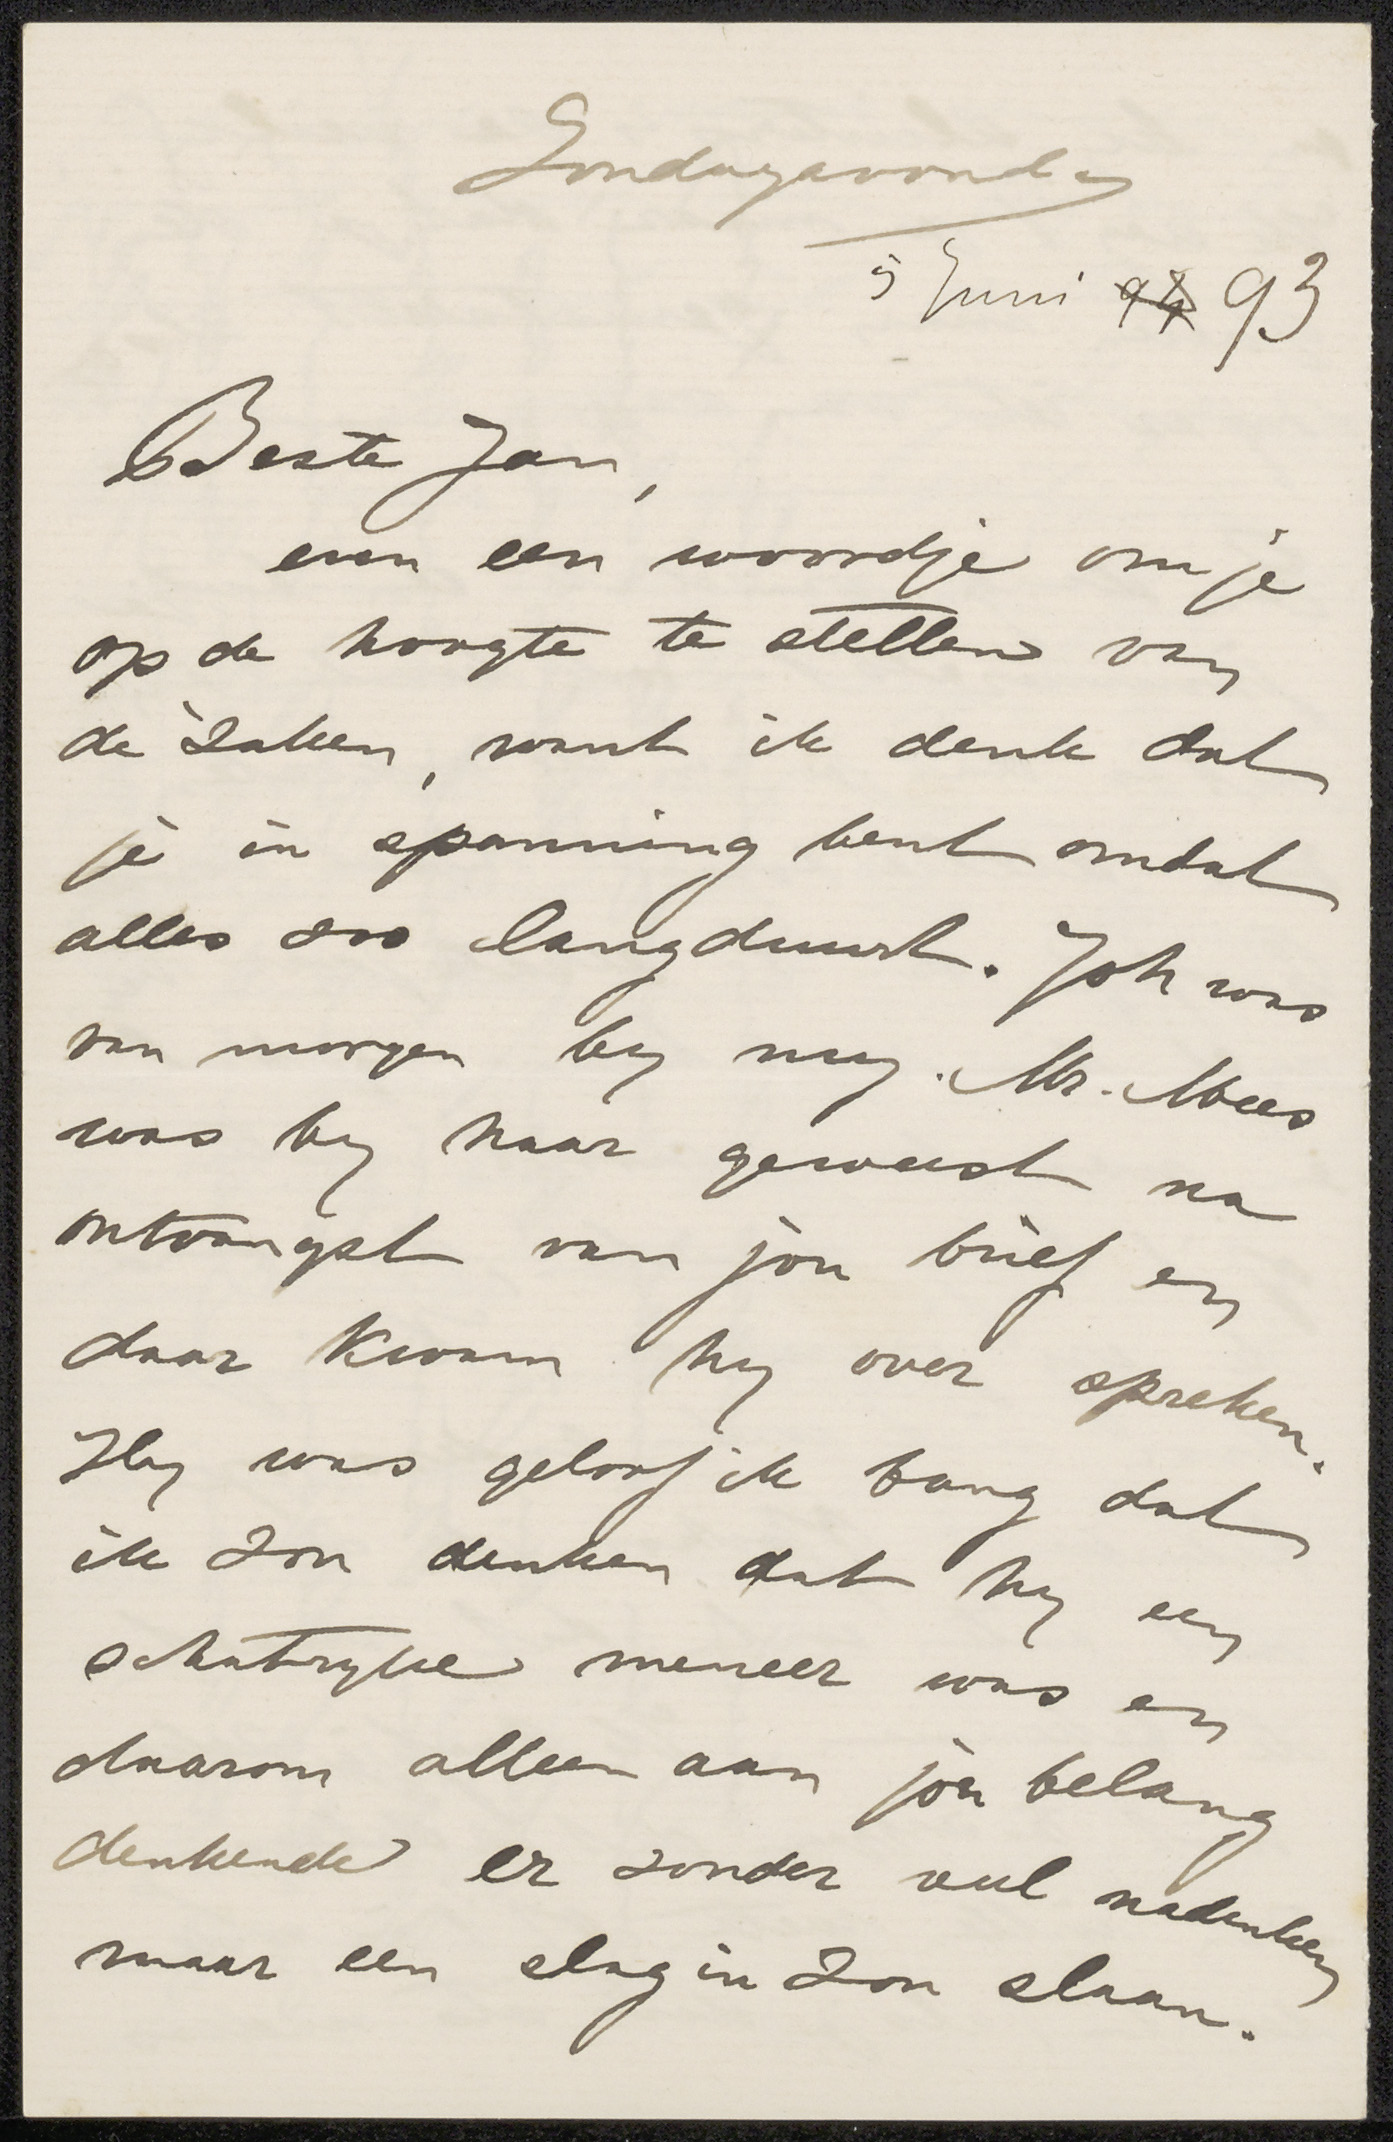 Zondagavond
5 Juni 94 93
Beste Jan,
even een woordje om je
op de hoogte te stellen van
de zaken, want ik denk dat
je in spanning bent omdat
alles zoo lang duurt. Joh was
van morgen by my. Mr. Mees
was by haar geweest na
ontvangst van jou brief en
daar kwam hy over spreken.
Hy was geloof ik bang dat
ik zou denken dat hy een
schatryke meneer was en
daarom alleen aan jou belang
denkende er zonder veel nadenken
maar een slag in zou slaan.